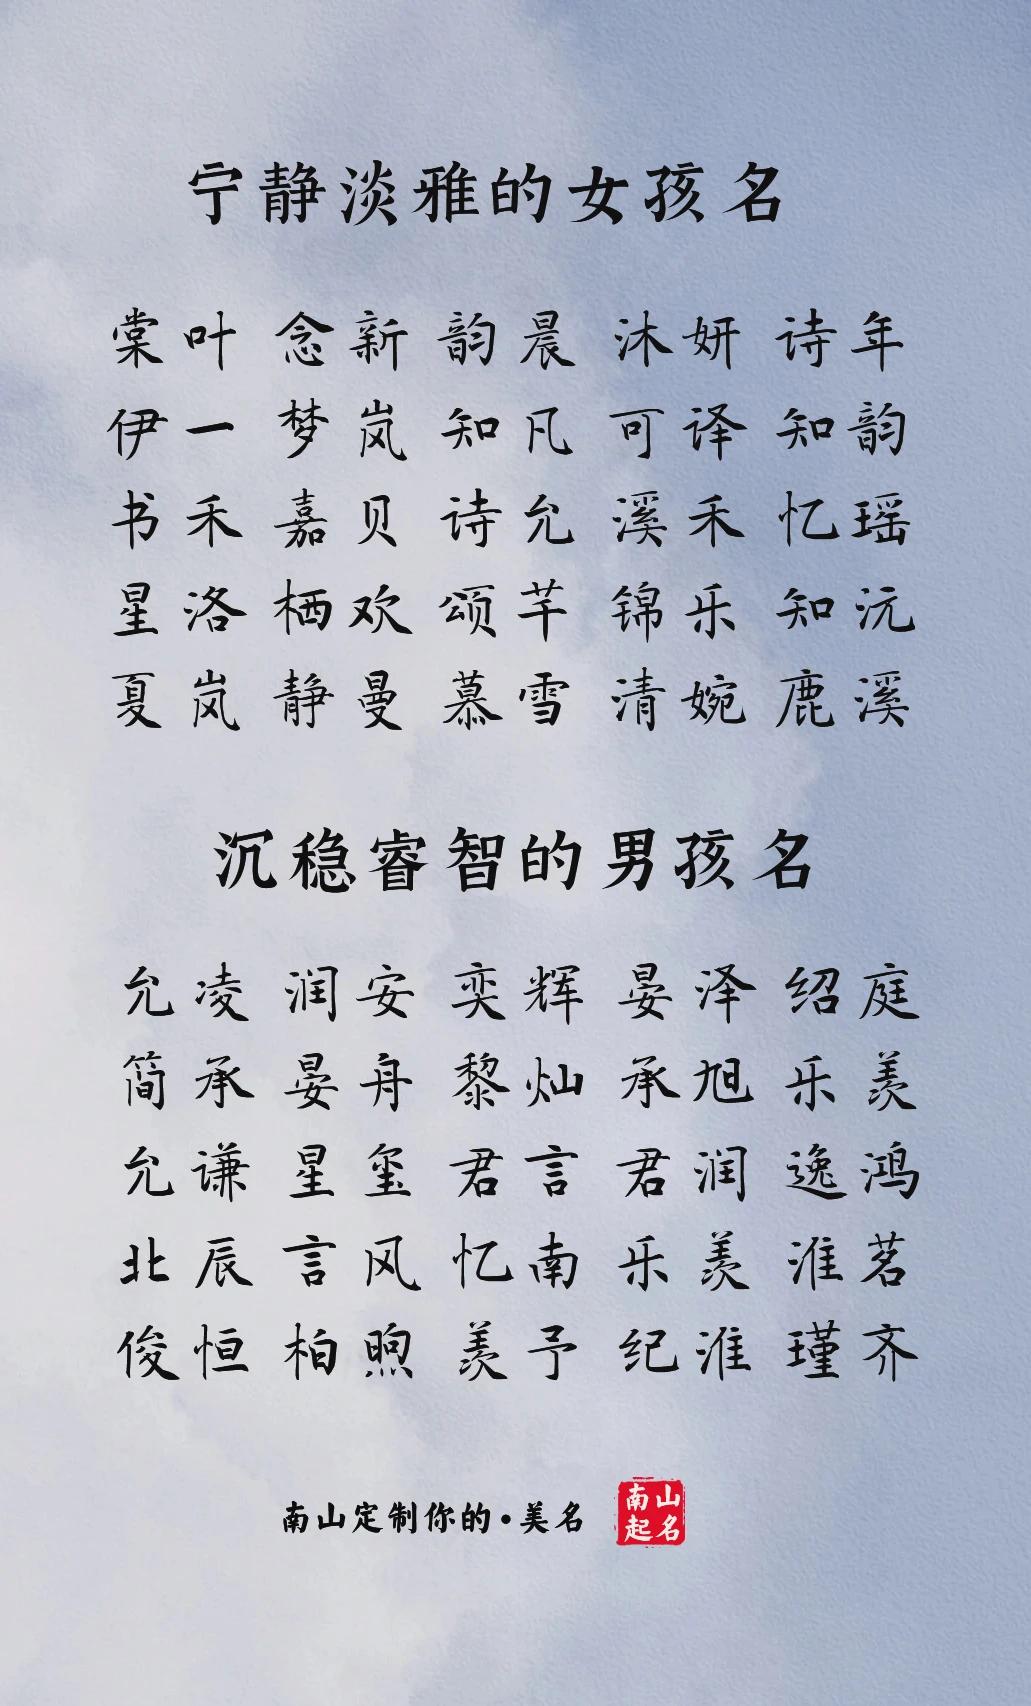 宁静淡雅的女孩名
棠叶 念新 韵晨 沐妍 诗年
伊一 梦岚 知凡 可译 知韵
书禾 嘉贝 诗允 溪禾 忆瑶
星洛 栖欢 颂芊 锦乐 知沅
夏岚 静曼 慕雪 清婉 鹿溪
沉稳睿智的男孩名
允凌 润安 奕辉 晏泽 绍庭
简承 晏舟 黎灿 承旭 乐羡
允谦 星玺 君言 君润 逸鸿
北辰 言风 忆南 乐羡 淮茗
俊恒 柏煦 羡予 纪淮 瑾齐
南山定制你的·美名
南山
起名